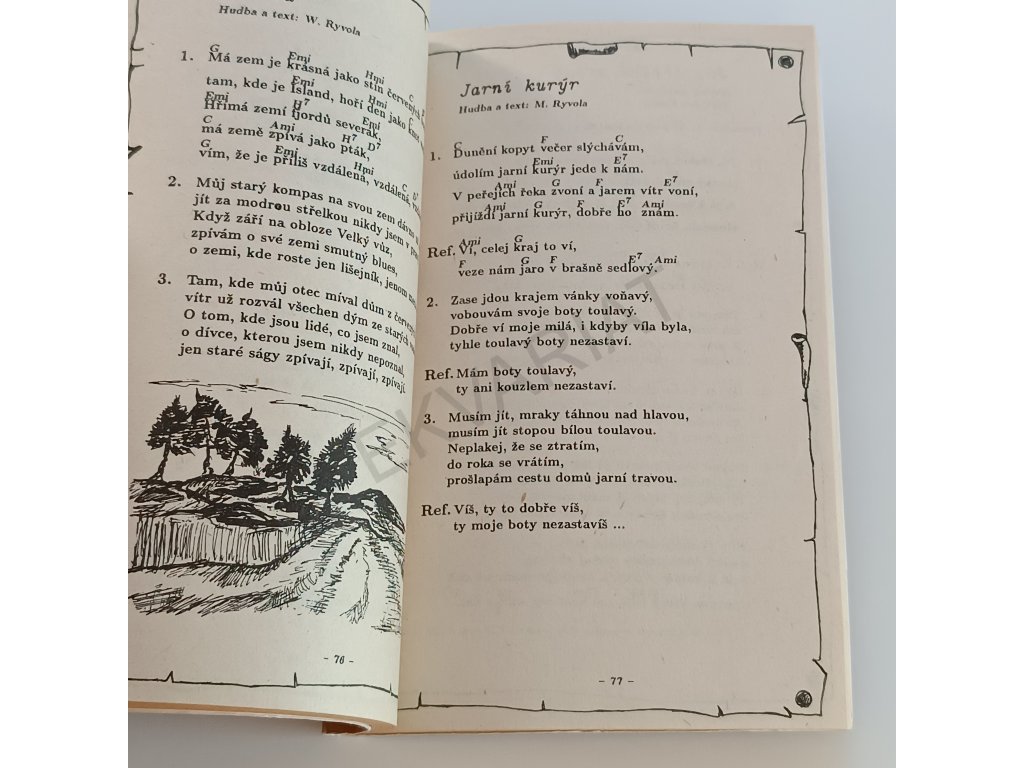 Hudba a text: W. Ryvola
G Emi Hmi C
1. Má zem je krásná jako stín červených
Emi Hmi G
tam, kde je Island, hoří den jako
Emi H7 Emi
Hřímá zemí fjordů severák,
C Ami H7 D7
má země zpívá jako pták,
G Emi Hmi C D7
vím, že je příliš vzdálená, vzdálená,
2. Můj starý kompas na svou zem dávno
jít za modrou střelkou nikdy jsem v
Když září na obloze Velký vůz,
zpívám o své zemi smutný blues,
o zemi, kde roste jen lišejník, jenom
3. Tam, kde můj otec míval dům z
vítr už rozvál všechen dým ze starých
O tom, kde jsou lidé, co jsem znal,
o dívce, kterou jsem nikdy nepoznal,
jen staré ságy zpívají, zpívají, zpívají.
- 76 -
Jarní kurýr
Hudba a text: M. Ryvola
C F C
1. Dunění kopyt večer slýchávám,
Emi E7
údolím jarní kurýr jede k nám.
Ami G F E7
V peřejích řeka zvoní a jarem vítr voní,
Ami G F E7 Ami
přijíždí jarní kurýr, dobře ho znám.
Ami G
Ref. Ví, celej kraj to ví,
F G F E7 Ami
veze nám jaro v brašně sedlový.
2. Zase jdou krajem vánky voňavý,
vobouvám svoje boty toulavý.
Dobře ví moje milá, i kdyby víla byla,
tyhle toulavý boty nezastaví.
Ref. Mám boty toulavý,
ty ani kouzlem nezastaví.
3. Musím jít, mraky táhnou nad hlavou,
musím jít stopou bílou toulavou.
Neplakej, že se ztratím,
do roka se vrátím,
prošlapám cestu domů jarní travou.
Ref. Víš, ty to dobře víš,
ty moje boty nezastavíš ...
- 77 -
EKVARIAT